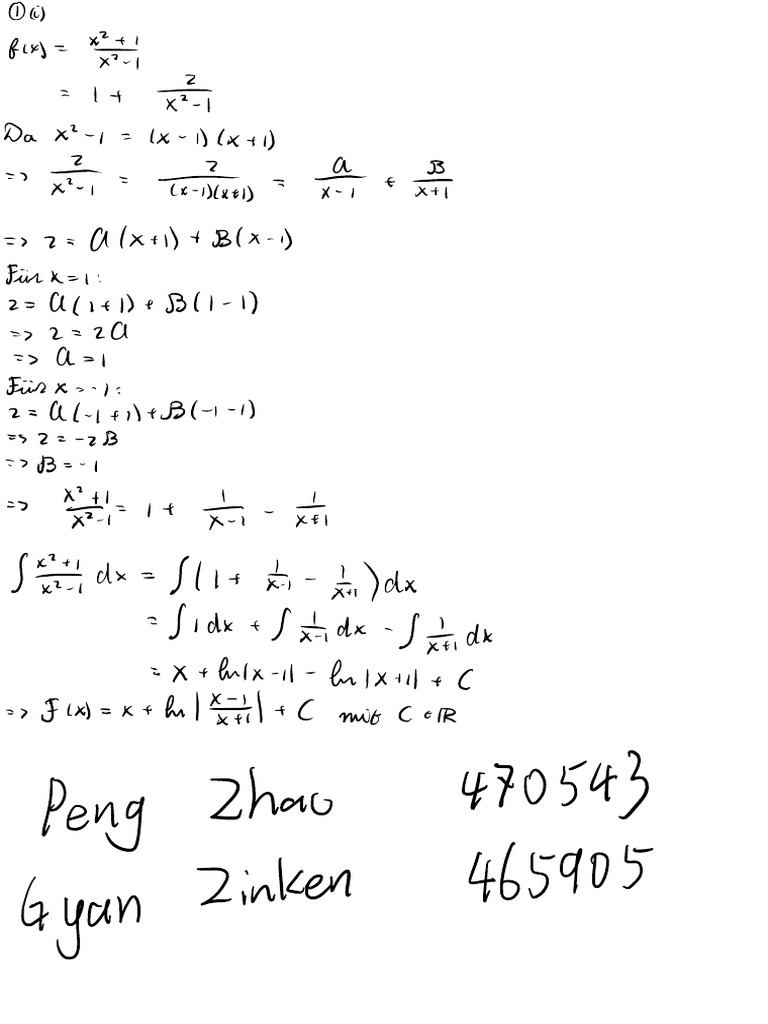 ① (i)
f(x) = (x² + 1)/(x² - 1)
= 1 + 2/(x² - 1)
Da x² - 1 = (x - 1)(x + 1)
=> 2/(x² - 1) = 2/((x-1)(x+1)) = A/(x - 1) + B/(x + 1)
=> 2 = A(x+1) + B(x-1)
Für x = 1:
2 = A(1+1) + B(1-1)
=> 2 = 2A
=> A = 1
Für x = -1:
2 = A(-1+1) + B(-1-1)
=> 2 = -2B
=> B = -1
=> (x² + 1)/(x² - 1) = 1 + 1/(x - 1) - 1/(x + 1)
∫ (x² + 1)/(x² - 1) dx = ∫ (1 + 1/(x-1) - 1/(x+1)) dx
= ∫ 1 dx + ∫ 1/(x-1) dx - ∫ 1/(x+1) dx
= x + ln|x-1| - ln|x+1| + C
=> F(x) = x + ln |(x-1)/(x+1)| + C mit C ∈ ℝ
Peng Zhao 470543
Gyan Zinken 465905